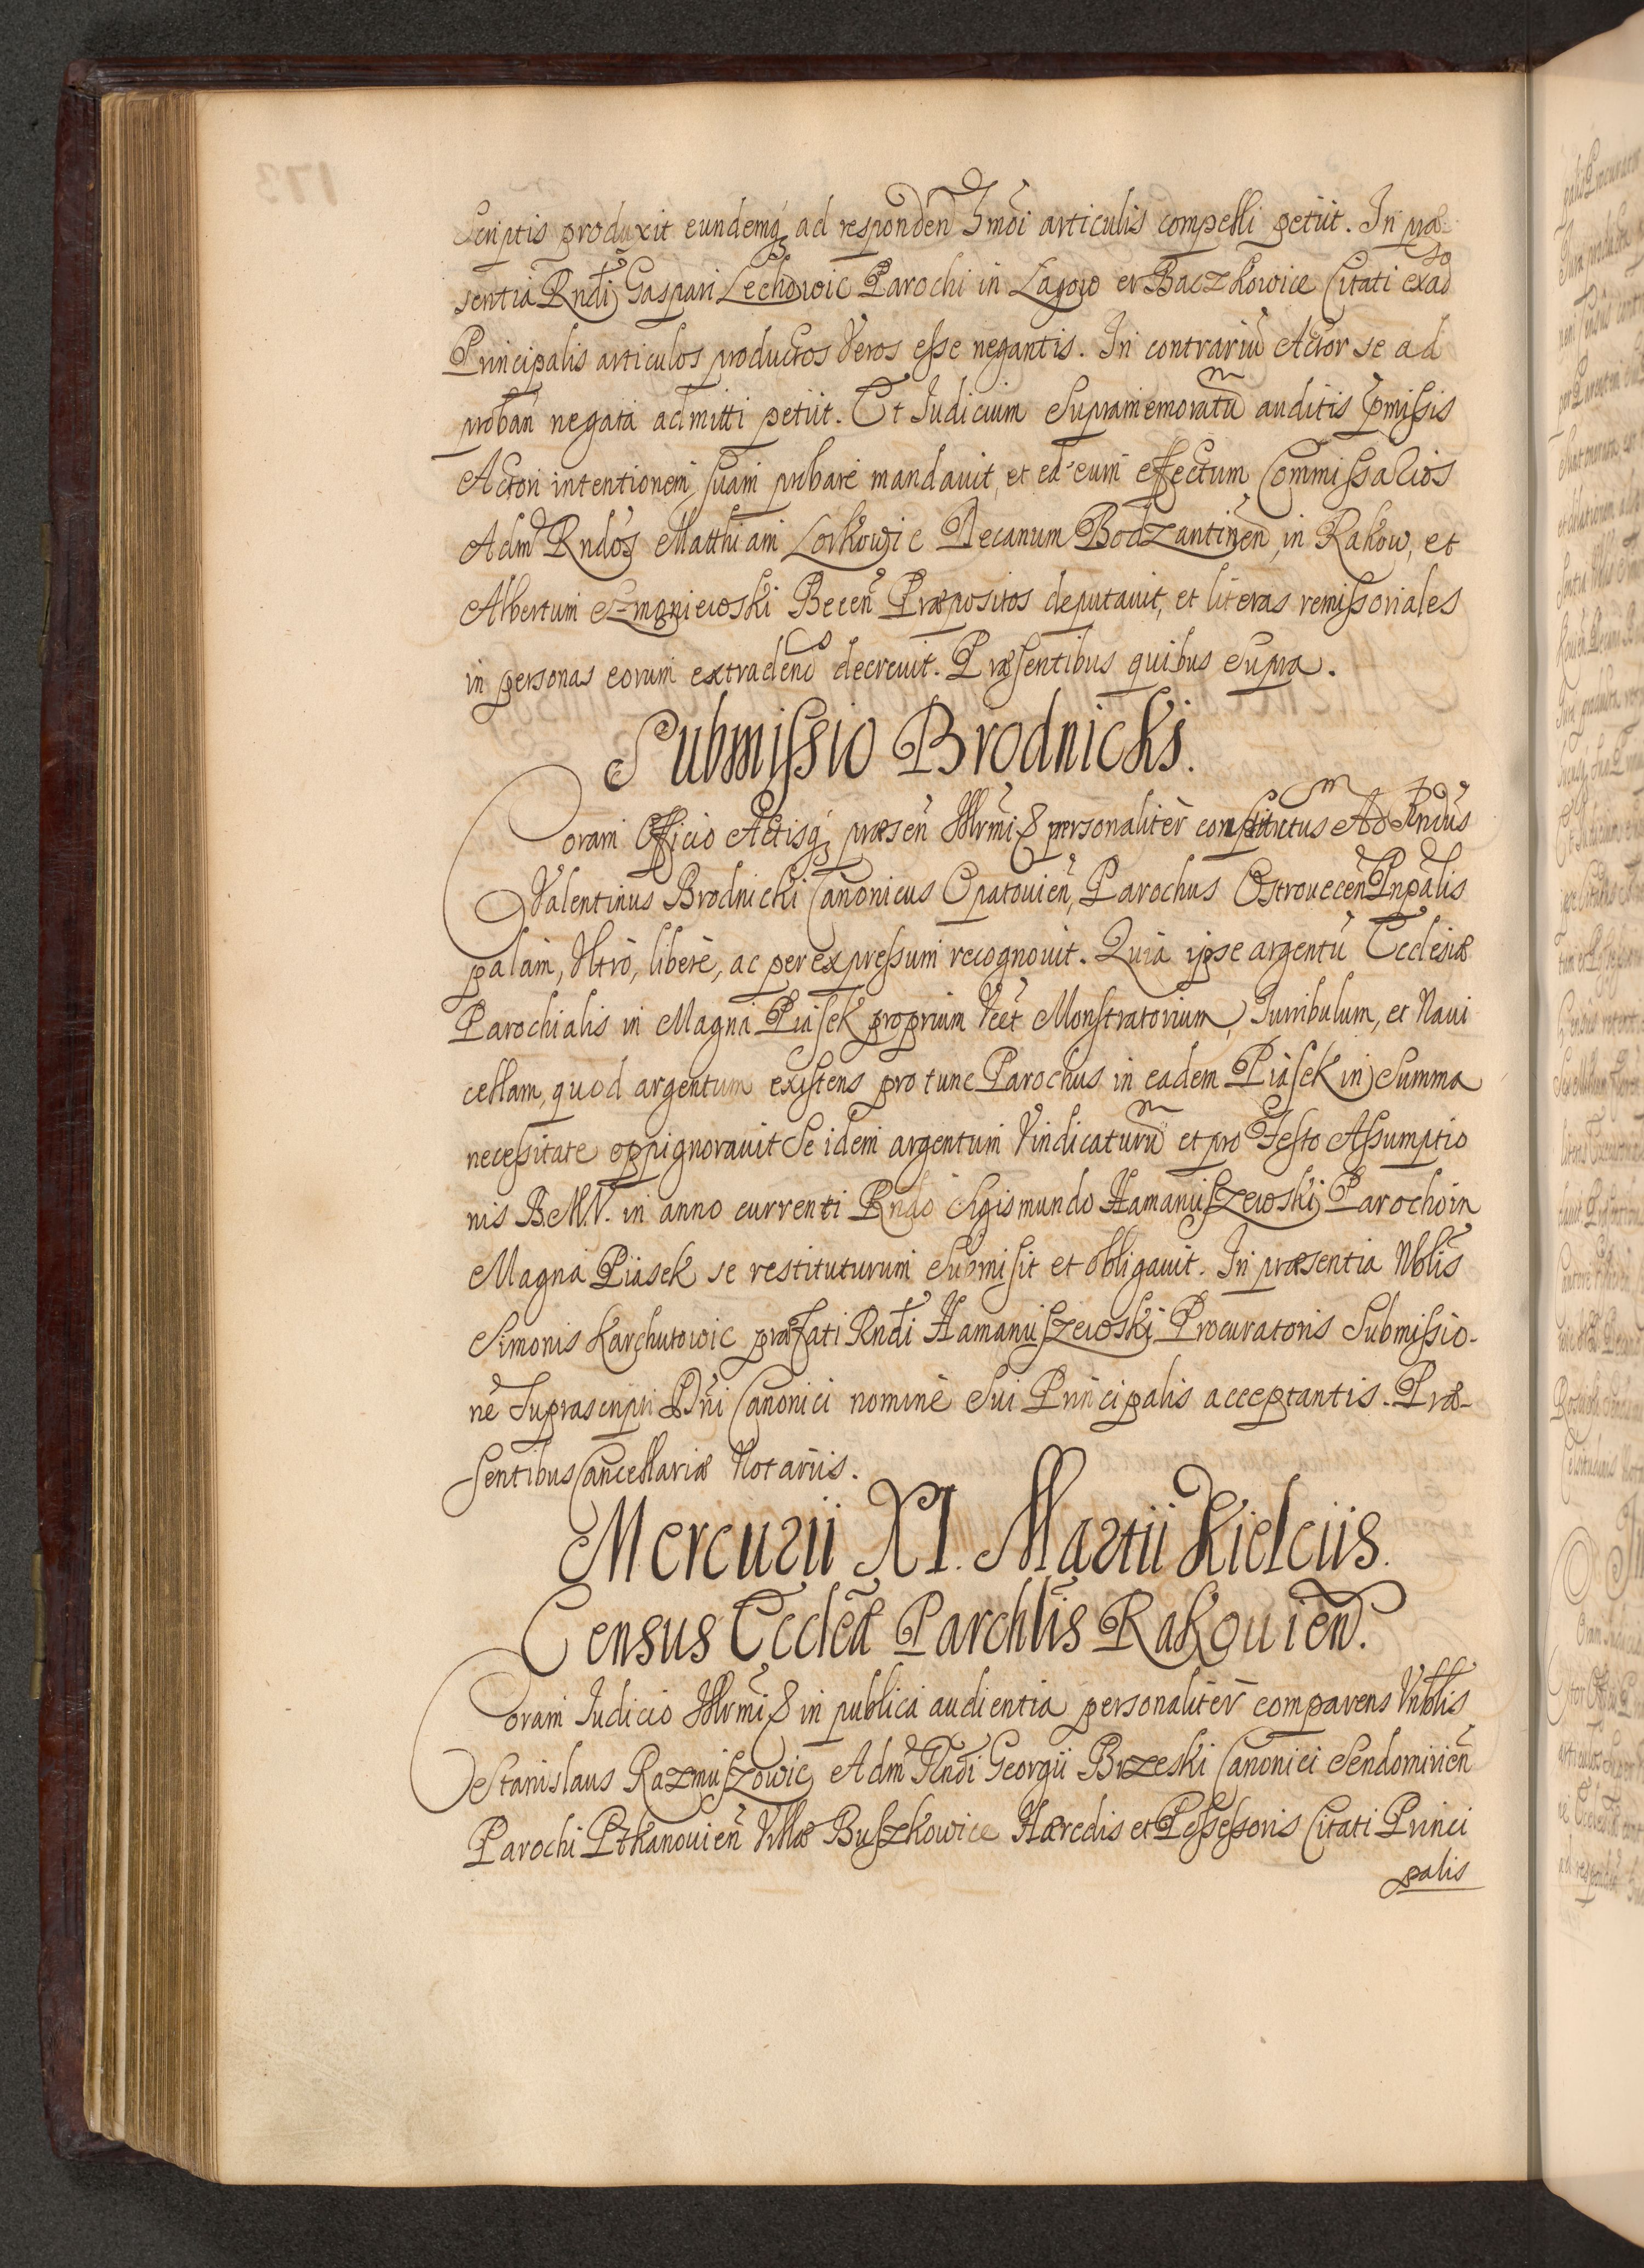 Scriptis produxit eundemq́ ad responden hmoi articulis compelli petiit. In præ-
sentia Rndi Gaspari Lechowic Parochi in Łagow et Baczkowice Citati ex ad so
Principalis articulos productos Veros esse negantis. In contrariũ Actor se ad
proban negata admitti petiit. Et Judicium Supramemoratũ auditis pmissis
Actori intentionem suam probare mandauit, et ad eum effectum Commissarios
Adm Rndos Matthiam Lorkowic Decanum Bodzantinen, in Rakow, et
Albertum Szmoniewski Becen Præpositos deputauit, et literas remissoriales
in personas eorum extradend decreuit. Præsentibus quibus supra.
Submissio Brodnicki.
Coram Officio Actisq́ præsen Illrmi & personaliter constitutus Ad Rndus
Valentinus Brodnicki Canonicus Opatouien, Parochus Ostrouecen Pnpalis
palam, Vltro, libere, ac per expressum recognouit. Quia ipse argentũ Ecclesiæ
Parochialis in Magna Piasek proprium Vcet Monstratorium, Turribulum, et Naui
cellam, quod argentum existens pro tunc Parochus in eadem Piasek in Summa
necessitate oppignorauit Se idem argentum Vindicaturũ et pro Festo Assumptio
nis B.M.V. in anno currenti Rndo Sigismundo Hamaniszewski Parocho in
Magna Piasek se restituturum submisit et obligauit. In præsentia Nblis
Simonis Karchutowic præfati Rndi Hamaniszewski Procuratoris Submissio-
ne Suprascripti Dni Canonici nomine Sui Principalis acceptantis. Præ-
sentibus Cancellariæ Notariis.
Mercurii XI. Martii Kielciis.
Census Eccleæ Parchlis Rakouien.
Coram Judicio Illrmi & in publica audientia personaliter comparens Vnblis
Stanislaus Razmuszowic Adm Rndi Georgii Brzeski Canonici Sendomirien
Parochi Ptkanouien Villæ Buszkowice Hæredis et Possessoris Citati Princi
palis